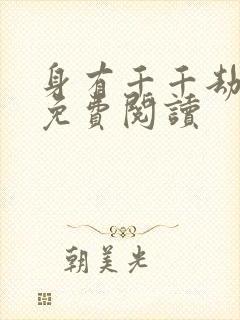 身有千千劫
免費閱讀
朝美光